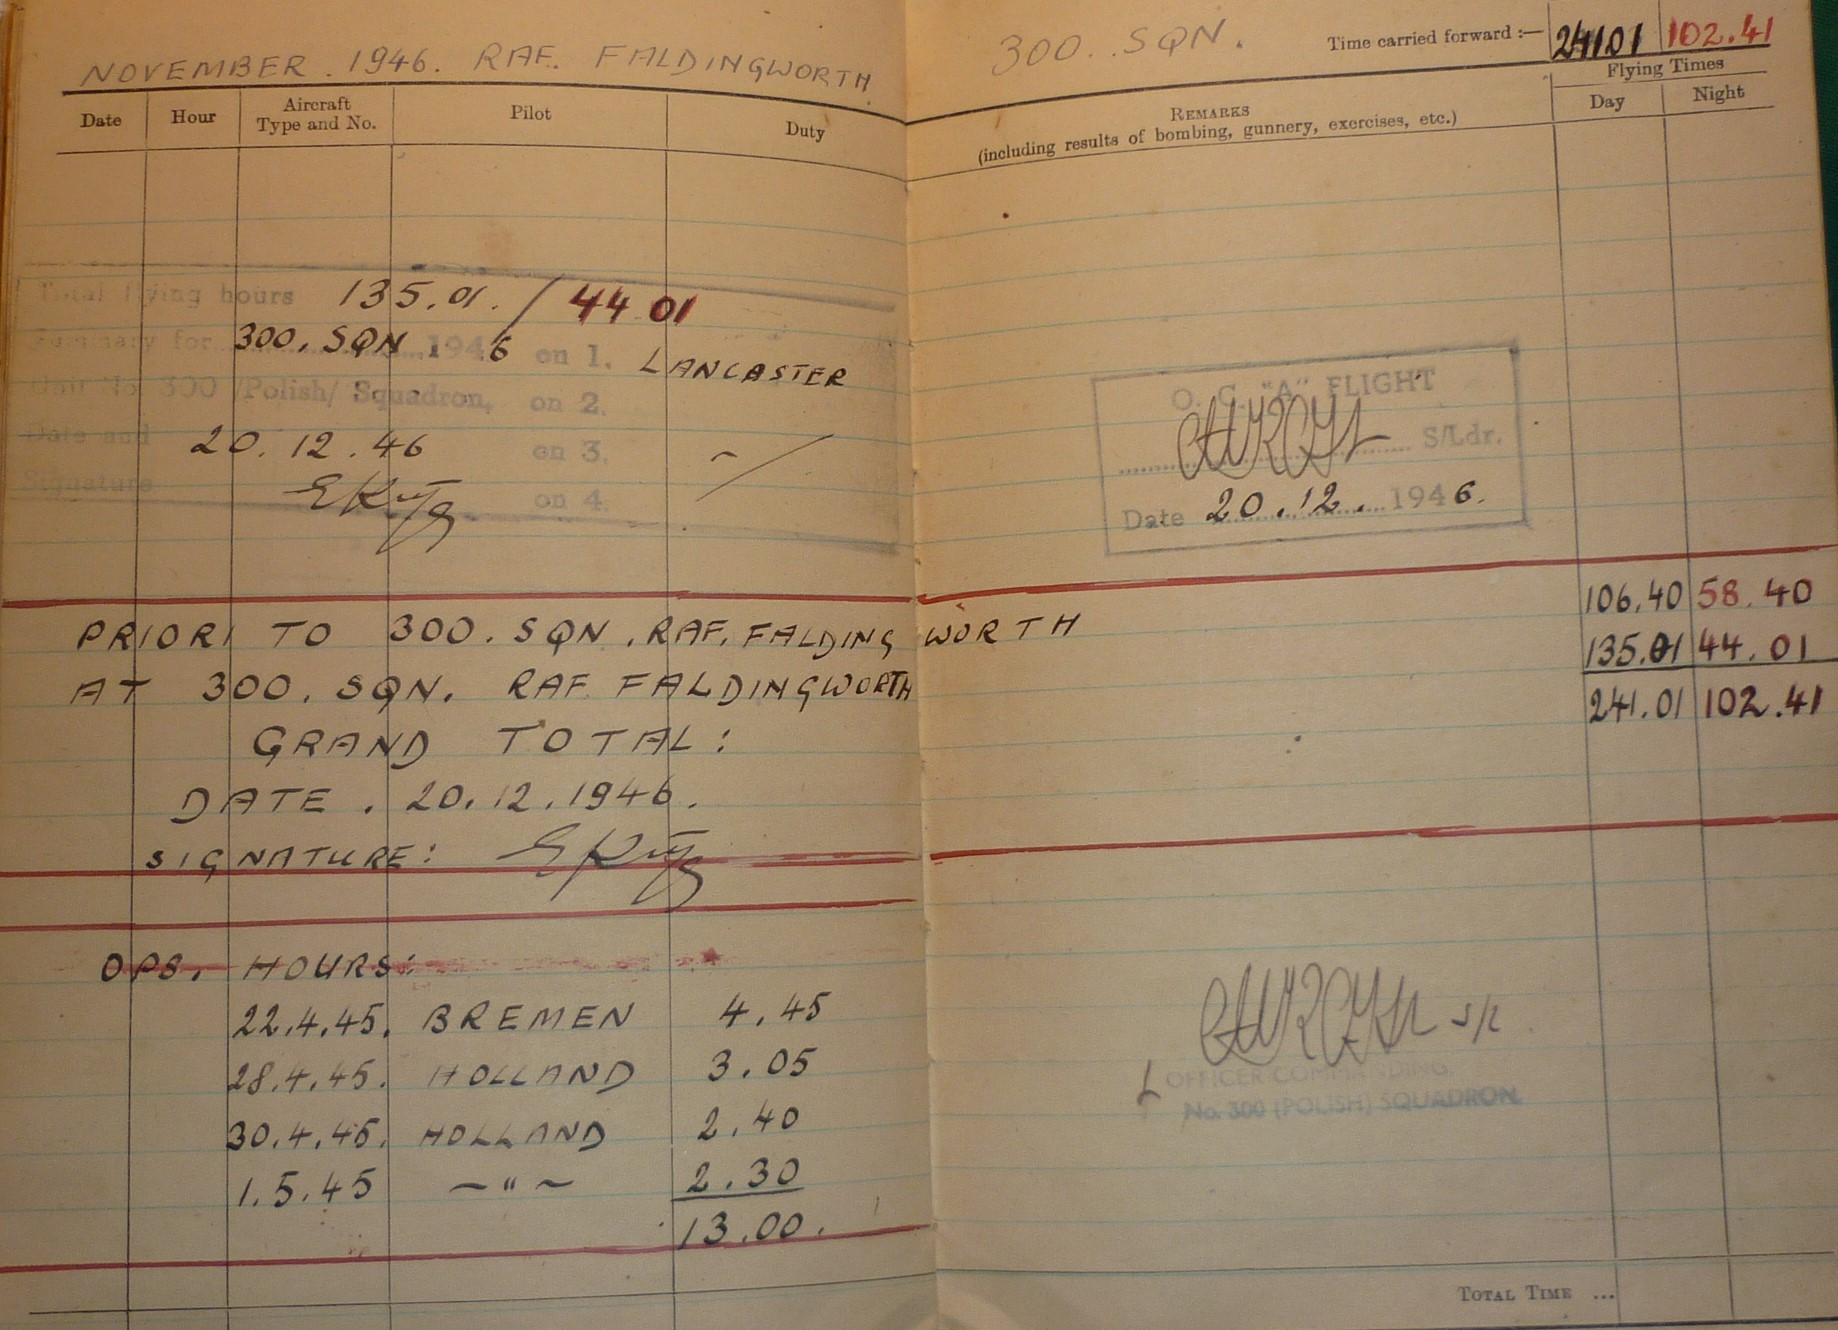 NOVEMBER . 1946. RAF. FALDINGWORTH.
Date Hour Aircraft Type and No. Pilot Duty
Total flying hours 135.01. / 44 01
Summary for 300. SQN 1946 on 1. LANCASTER
Unit No. 300 /Polish/ Squadron, on 2.
Date and 20.12.46 on 3. ~ /
Signature on 4.
PRIORI TO 300. SQN. RAF. FALDINGWORTH
AT 300. SQN. RAF FALDINGWORTH
GRAND TOTAL:
DATE. 20.12.1946.
SIGNATURE:
OPS. HOURS:
22.4.45. BREMEN 4.45
28.4.45. HOLLAND 3.05
30.4.45. HOLLAND 2.40
1.5.45 ~ " ~ 2.30
13.00.
300. SQN. Time carried forward :— 241 01 102.41
Flying Times
REMARKS
(including results of bombing, gunnery, exercises, etc.) Day Night
O. C. "A" FLIGHT
S/Ldr.
Date 20.12. 1946.
106.40 58.40
135.01 44.01
241.01 102.41
S/L
OFFICER COMMANDING,
No. 300 (POLISH) SQUADRON.
TOTAL TIME ...